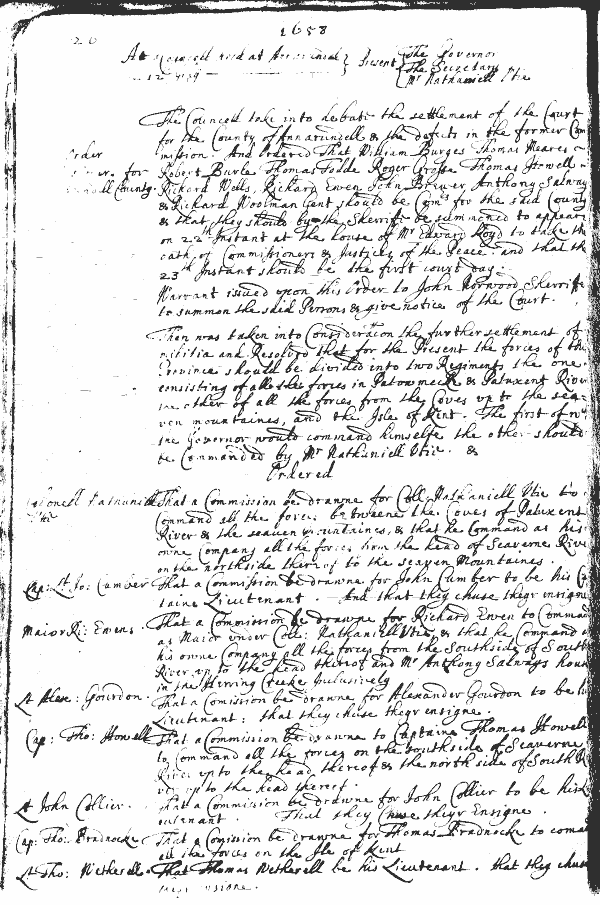 1658
26
At Councell held at Annarundel } Present { The Governor
12 July The Secretary
Mr Nathaniell Utie
The Councell take into debate the settlement of the Court
for the County of Annarundell & the defects in the former Com
Order mission. And Ordered That William Burges Thomas Meares
for Robert Burle Thomas Todde Roger Grosse Thomas Howell
County. Richard Wells, Richard Ewen John Brewer Anthony Salway
& Richard Woolman Gent should be Comrs for the said County
& that they should by the Sherriffe be summoned to appeare
on 22th Instant at the house of Mr Edward Lloyd to take the
oath of Commissioners & Justices of the Peace. and that the
23th Instant should be the first court day.
Warrant issued upon this Order to John Norwood Sherriffe
to summon the said Persons & give notice of the Court.
Then was taken into Consideracon the further settlement of
militia and Resolved that for the Present the forces of the
Province should be divided into two Regiments the one
consisting of all the forces in Patowmeck & Patuxent River
the other of all the forces from the Coves up to the sea-
ven mountaines, and the Isle of Kent. The first of
the Governor would command himselfe the other should
be Commanded by Mr Nathaniell Utie. &
Ordered
Nathaniell That a Commission be drawne for Coll: Nathaniell Utie to
Utie Command all the forces betweene the Coves of Patuxent
River & the seaven mountaines, & that he Command as his
owne Company all the forces from the head of Seaverne River
on the northside thereof to the seaven Mountaines.
Cap: Lt. Jo: Cumber That a Commission be drawne for John Cumber to be his Cap
taine Lieutenant. And that they chuse theyr ensigne
Maior Ri: Ewens. That a Commission be drawne for Richard Ewen to Command
as Maior under Coll: Nathaniell Utie, & that he command as
his owne Company all the forces from the Southside of South
River up to the head thereof and Mr Anthony Salways house
in the Herring Creeke Inclusively
Lt Alex: Gourdon. That a Comission be drawne for Alexander Gourdon to be his
Lieutenant: that they chuse theyr ensigne.
Cap: Tho: Howell That a Commission be drawne to Captaine Thomas Howell
to Command all the forces on the southside of Seaverne
River up to the head thereof & the north side of South Ri
ver up to the head thereof.
Lt John Collier. That a Commission be drawne for John Collier to be his
Lieutenant. That they Chuse theyr Ensigne.
Cap: Tho: Bradnocke That a Comission be drawne for Thomas Bradnocke to comand
all the forces on the Isle of Kent
Lt Tho: Hetherell. That Thomas Hetherell be his Lieutenant. that they chuse
theyr ensigne.